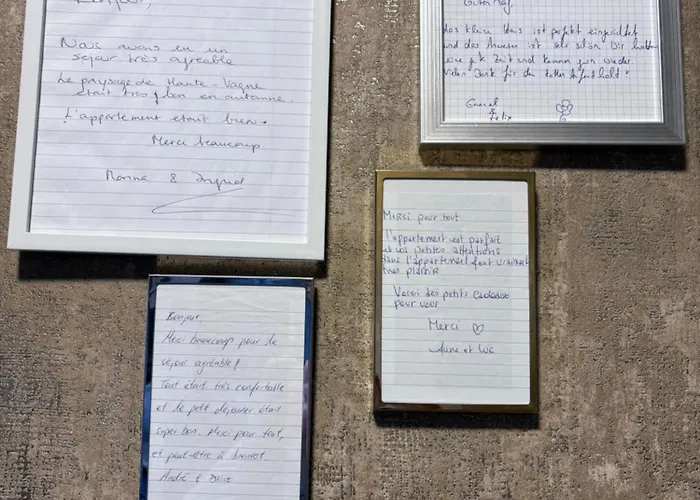 Bonjour,
Nous avons eu un
séjour très agréable
Le paysage de Haute-Vagne
était très bon en automne.
L'appartement était bien.
Merci beaucoup
&
Guten Tag,
das kleine Haus ist perfekt eingerichtet
und das Anwesen ist sehr schön. Wir hatten
eine Zeit und kommen gern wieder.
Vielen Dank für den tollen Aufenthalt!
&
Felix
Merci pour tout
l'appartement est parfait
et vos petites attentions
dans l'appartement font vraiment
très plaisir
Voici des petits cadeaux
pour vous
Merci ♡
Anne et Luc
Bonjour,
Merci beaucoup pour le
séjour agréable!
Tout était très confortable
et le petit déjeuner était
super bon. Merci pour tout,
et peut-être à bientôt.
André & Julie